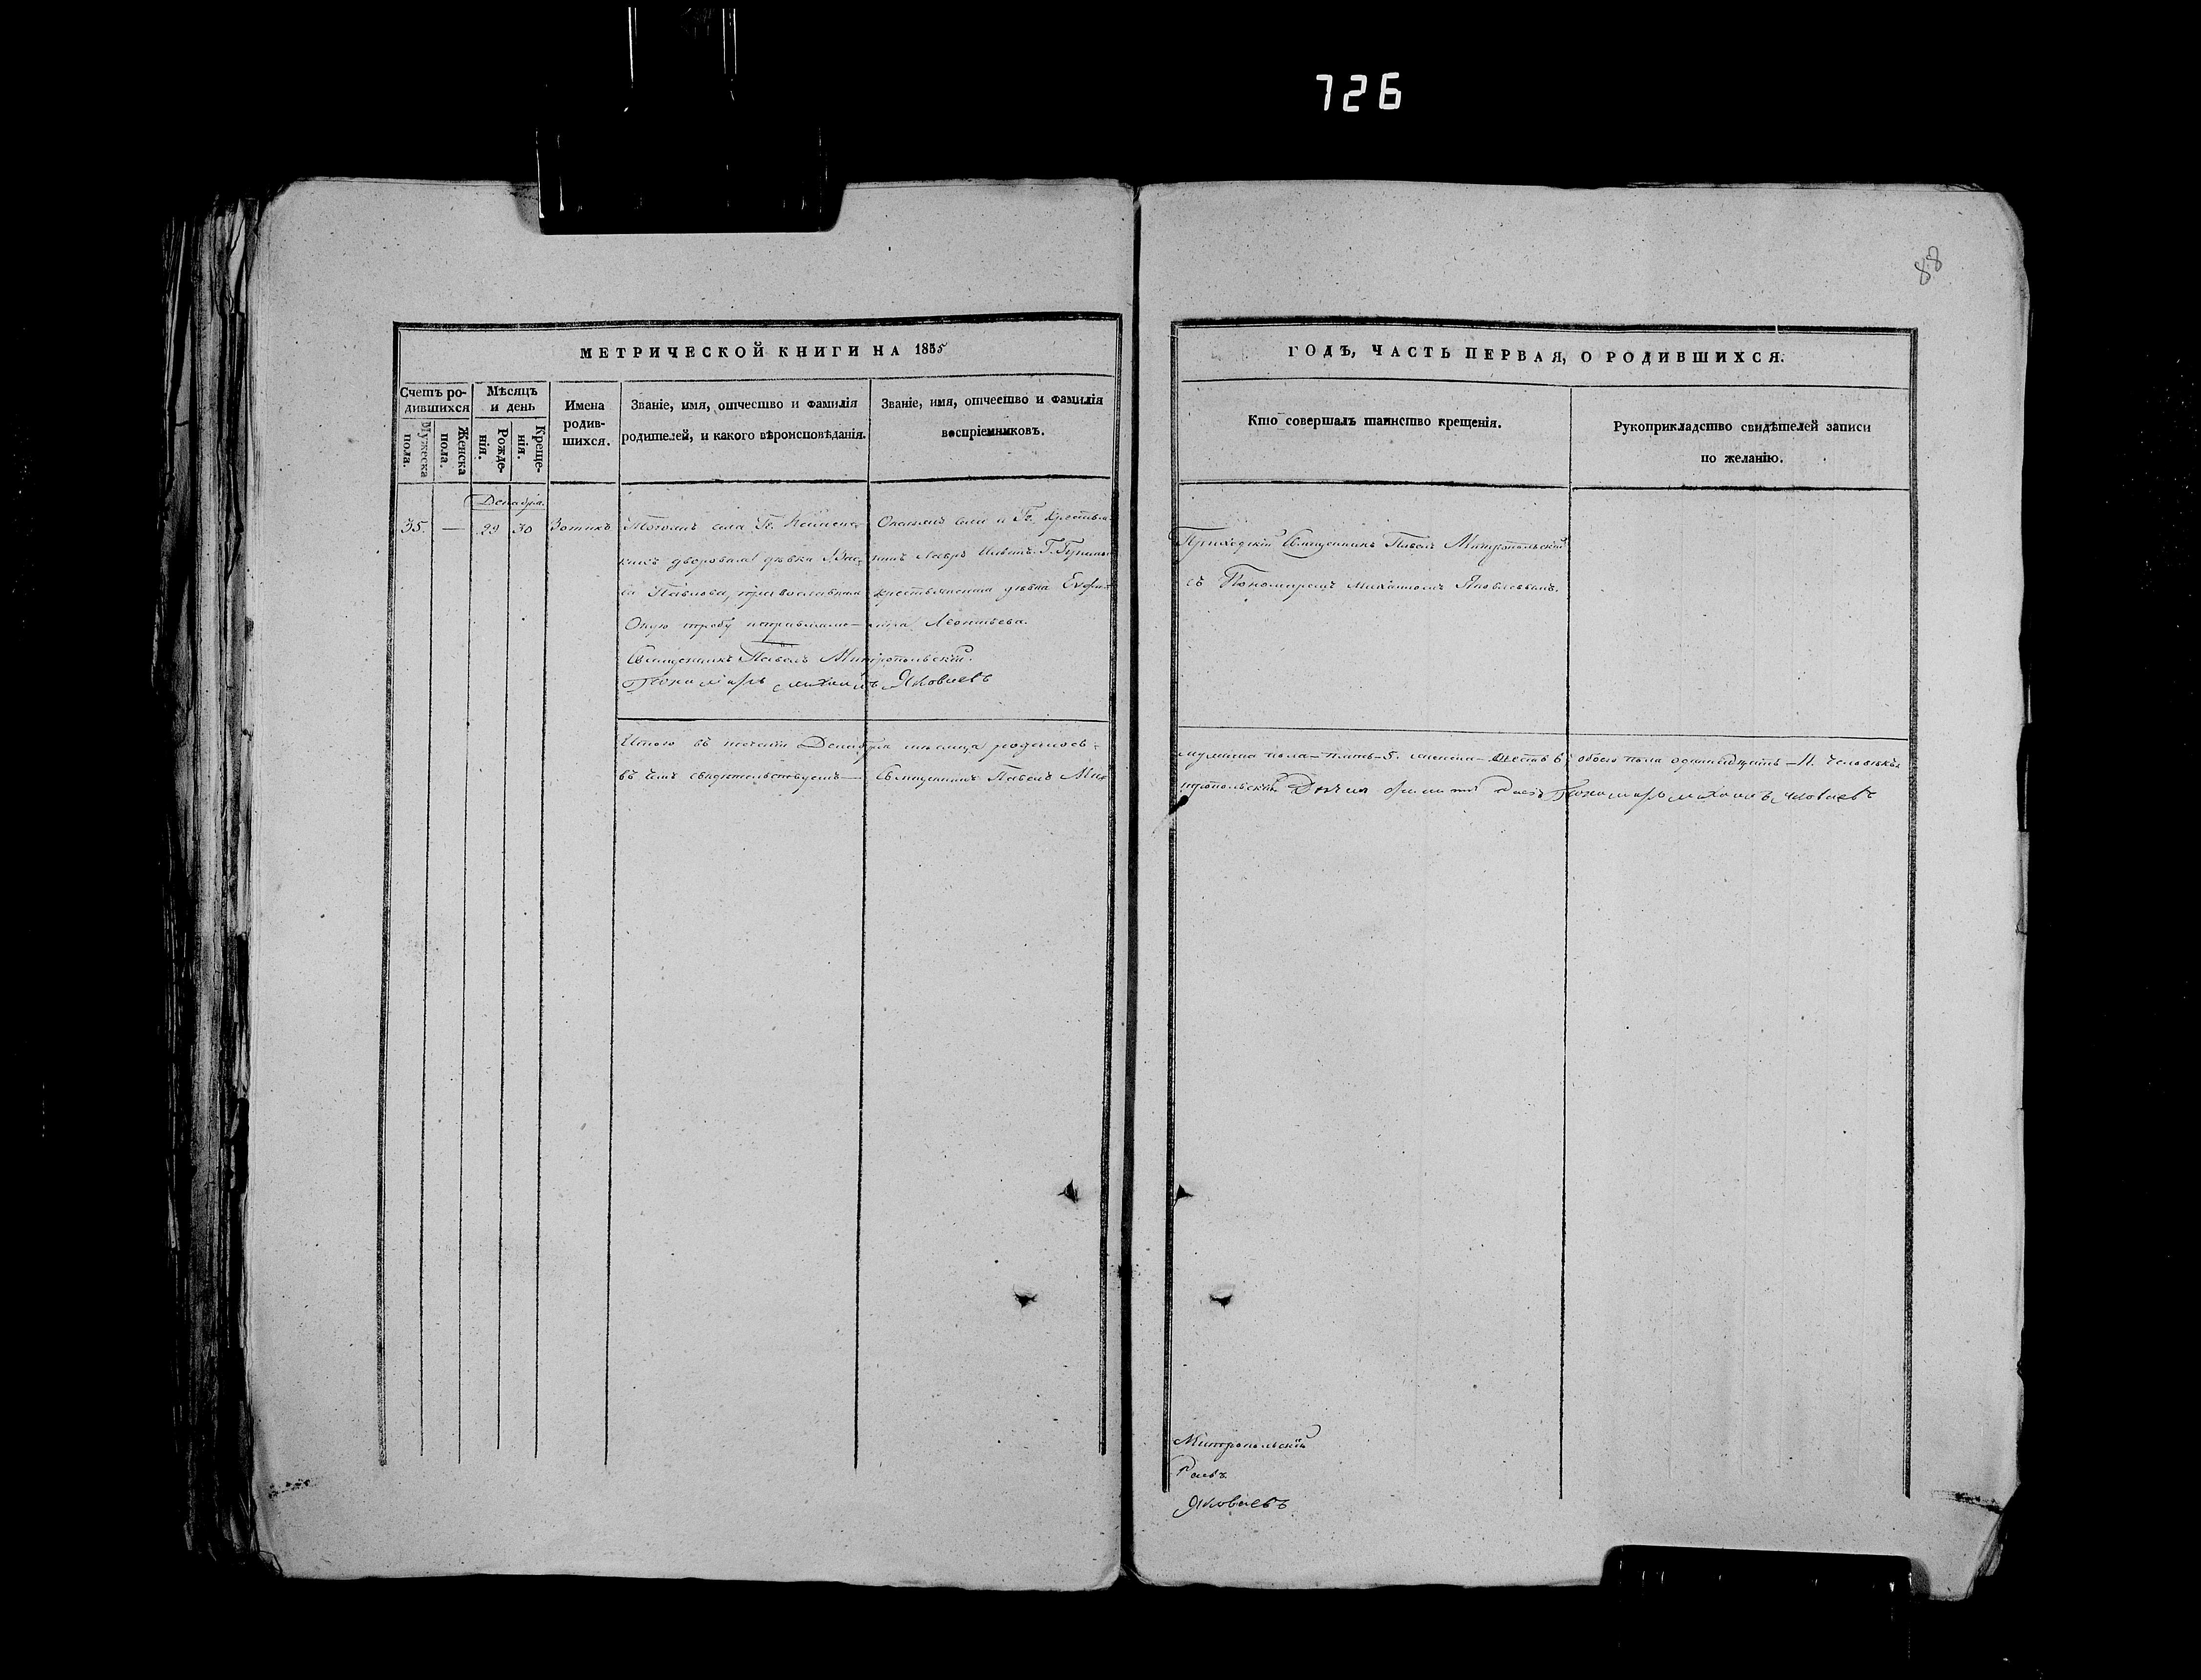 726
88
МЕТРИЧЕСКОЙ КНИГИ НА 1855
ГОДЪ, ЧАСТЬ ПЕРВАЯ, О РОДИВШИХСЯ.
Счетъ родившихся
Мужеска пола.
Женска пола.
Мѣсяцъ и день
Рожденія.
Крещенія.
Имена родившихся.
Званіе, имя, отчество и фамилія
родителей, и какого вѣроисповѣданія.
Званіе, имя, отчество и фамилія
воспріемниковъ.
Кто совершалъ таинство крещенія.
Рукоприкладство свидѣтелей записи
по желанію.
Декабря.
35. — 29 30 Зотикъ
села Гг.
дворовая дѣвка
Павлова, православная
Оную требу исправляли
Священникъ Павелъ Митропольскій.
Пономарь михаилъ Яковлевъ
и Гг. крестьянинъ
крестьянская дѣвка
Леонтьева.
Приходскій Священникъ Павелъ Митропольскій
съ Пономаремъ Михаиломъ Яковлевымъ.
Итого въ теченіи Декабря мѣсяца родилось
мужеска пола — пять — 5. женска — шесть 6 обоего пола одинадцать — 11. человѣкъ
въ чемъ свидѣтельствуемъ — Священникъ Павелъ Митропольскій
Пономарь михаилъ Яковлевъ
Митропольскій
Раевъ
Яковлевъ